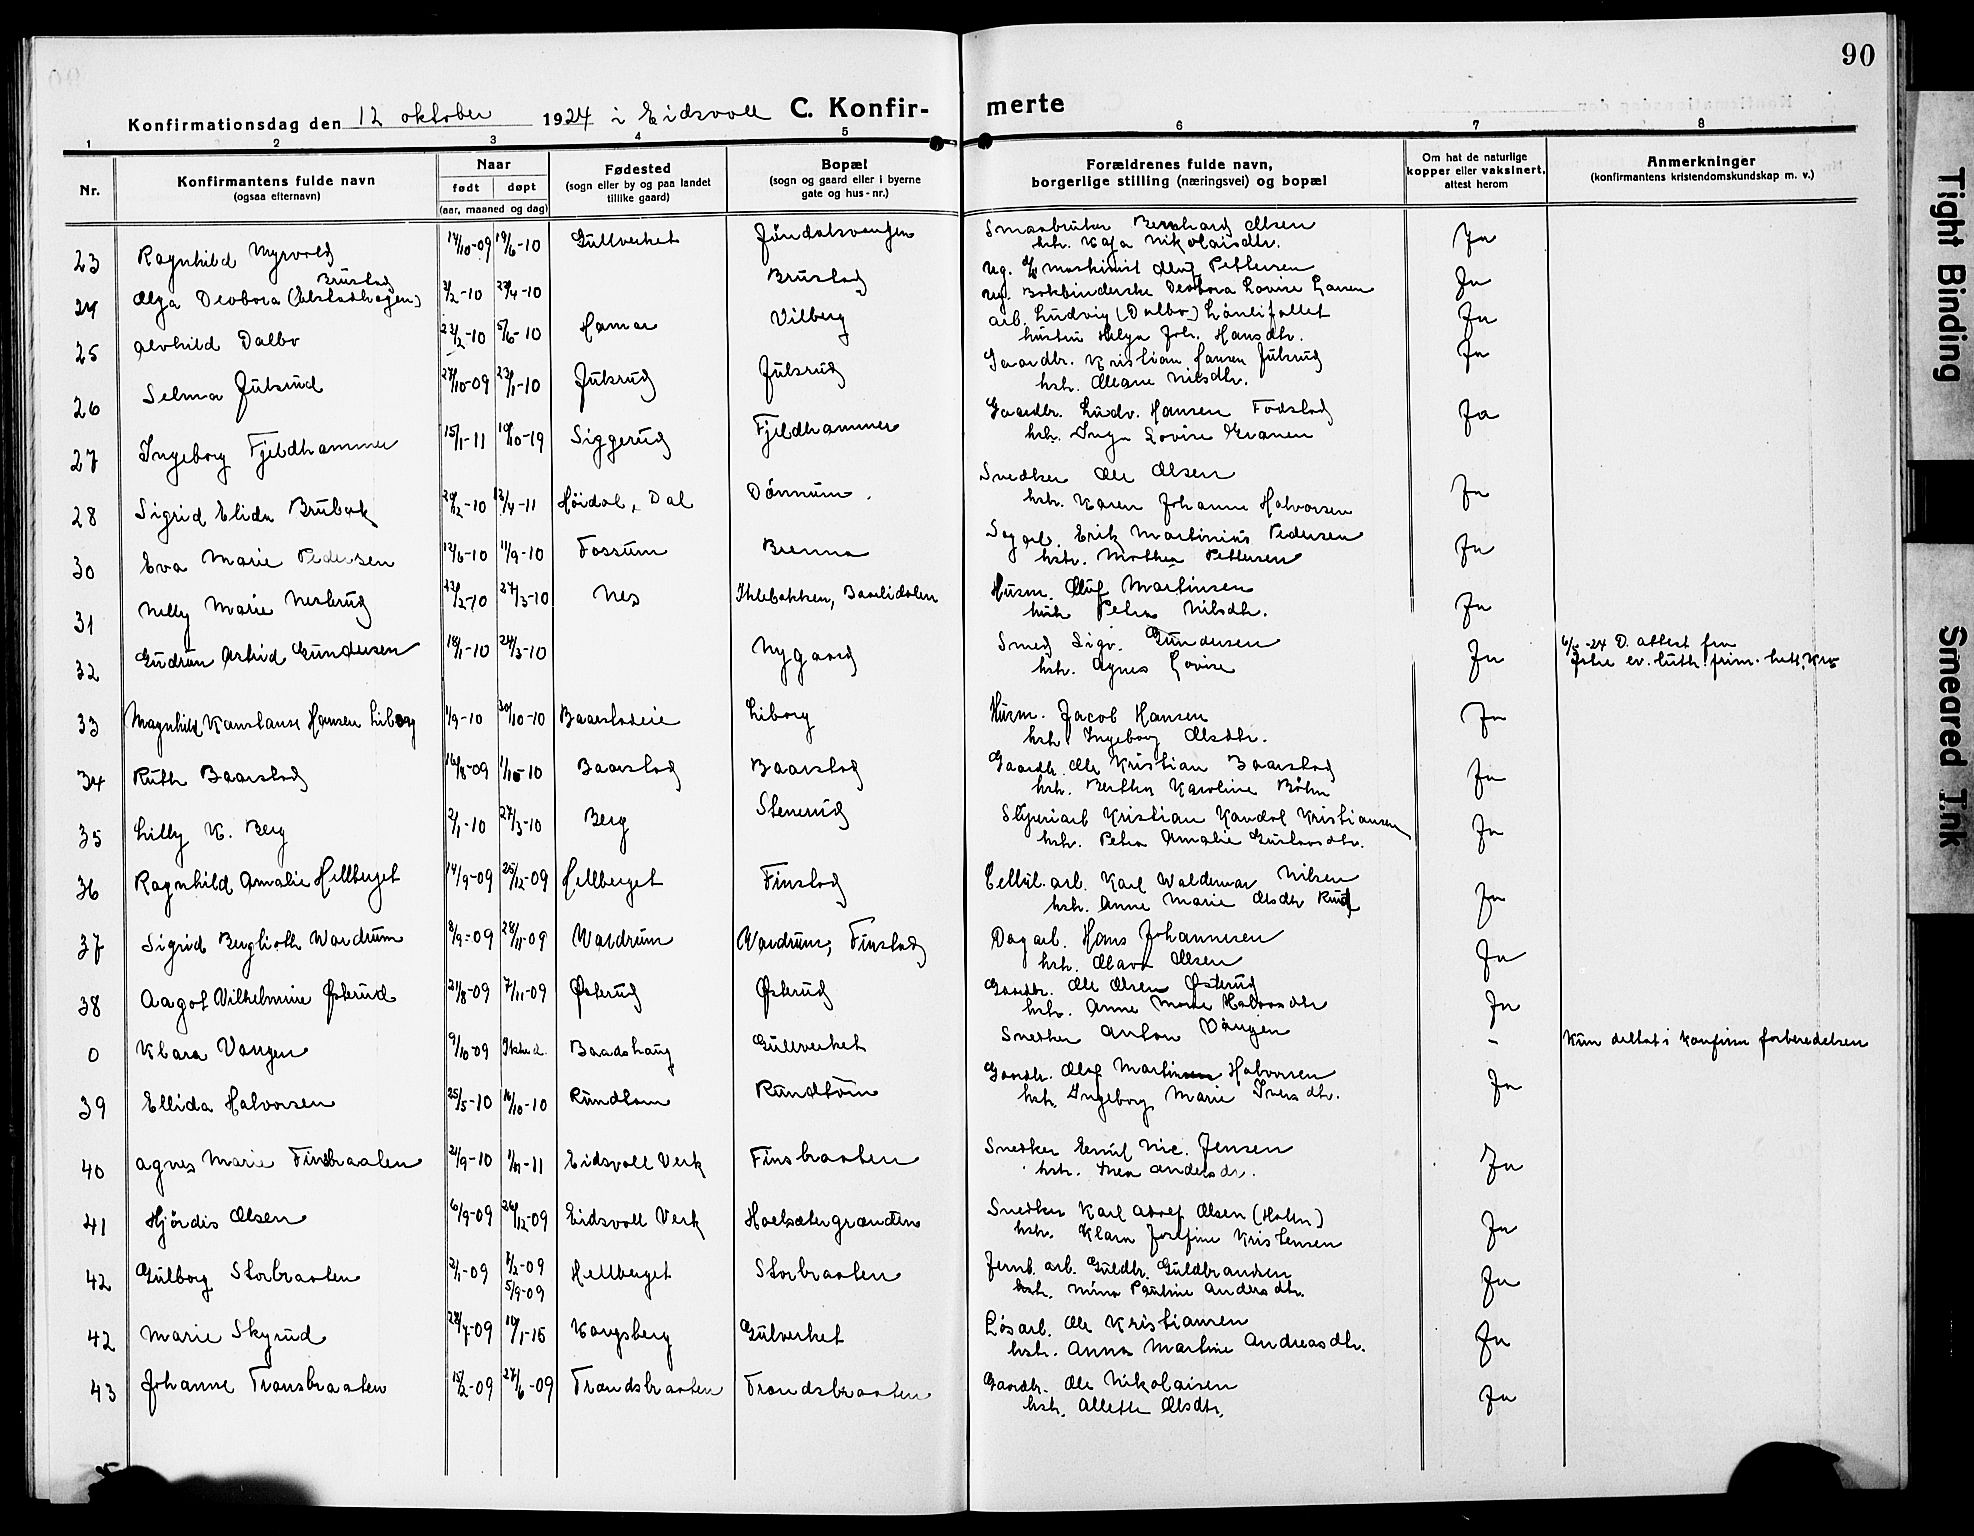 90
Konfirmationsdag den 12 oktober 1924 i Eidsvoll C. Konfirmerte
1 2 3 4 5 6 7 8
Nr. Konfirmantens fulde navn (ogsaa efternavn) Naar født døpt (aar, maaned og dag) Fødested (sogn eller by og paa landet tillike gaard) Bopæl (sogn og gaard eller i byerne gate og hus-nr.) Forældrenes fulde navn, borgerlige stilling (næringsvei) og bopæl Om hat de naturlige kopper eller vaksinert, attest herom Anmerkninger (konfirmantens kristendomskundskap m. v.)
23 Ragnhild Nyrvold 14/10-09 19/6-10 Gullverket Jøndalsvangen Smaabruker Bernhard Olsen Ja
hstr. Kaja Nikolaisdtr.
Brustad
24 Olga Deobora 3/2-10 23/4-10 Brustad maskinist Oluf Pettersen Ja
Bokbinderske Deobora Lovise Hansen
25 Alvhild Dalbo 23/2-10 5/6-10 Hamar Vilberg arb. Ludvig (Dalbo) Ja
hustru Helga Joh. Hansdtr.
26 Selma Julsrud 27/10-09 23/1-10 Julsrud Julsrud Gaardbr. Kristian Hansen Julsrud Ja
hstr. Oleane Nilsdtr.
27 Ingeborg Fjeldhammer 15/1-11 19/10-19 Siggerud Fjeldhammer Gaardbr. Ludv. Hansen Fodstad Ja
hstr. Inga Lovise Granen
28 Sigrid Elida Brubak 20/12-10 17/4-11 Høidal, Dal Dønnum. Snedker Ole Olsen Ja
hstr. Karen Johanne Halvorsen
30 Eva Marie Pedersen 12/6-10 11/9-10 Fossum Brenna Sagarb. Erik Martinius Pedersen Ja
hstr. Mathea Pettersen
31 Nelly Marie Nesbrud 23/2-10 27/3-10 Nes Ihlebakken, Baarlidalen Husm. Oluf Martinsen Ja
hustr. Petra Nilsdtr.
32 Gudrun Astrid Gundersen 14/1-10 24/3-10 Nygaard Smed Sigv. Gundersen Ja 6/5-24 D. attest fra
hstr. Agnes Lovise ev. luth. frim.
33 Magnhild Konstanse Hansen Liborg 1/9-10 30/10-10 Baarstadeie Liborg Husm. Jacob Hansen Ja
hstr. Ingeborg Olsdtr.
34 Ruth Baarstad 16/8-09 1/10-10 Baarstad Baarstad Gaardbr. Ole Kristian Baarstad Ja
hstr. Bertha Karoline Bøhn
35 Lilly K. Berg 2/1-10 27/3-10 Berg Stenerud Kristian Kandol Kristiansen Ja
hstr. Petra Amalie Gustavsdtr.
36 Ragnhild Amalie Hellberget 14/9-09 25/12-09 Hellberget Finstad Cellul. arb. Karl Waldemar Nilsen Ja
hstr. Anne Marie Olsdtr Rud
37 Sigrid Berglioth Wardrum 8/9-09 28/11-09 Wardrum Wardrum, Finstad Dagarb. Hans Johannesen Ja
hstr. Olava Olsen
38 Aagot Vilhelmine Østerud 21/8-09 7/11-09 Østerud Østerud Gaardbr. Ole Olsen Østerud Ja
hstr. Anne Marie Halvorsdtr
0 Klara Vangen 9/10-09 Baadshaug Gullverket Snedker Anton Vangen - Kun deltat i konfirm forberedelsen
39 Ellida Halvorsen 25/5-10 16/10-10 Rundtom Rundtom Gaardbr. Olaf Martin Halvorsen Ja
hstr. Ingeborg Marie Iversdtr.
40 Agnes Marie Finsbraaten 21/9-10 Eidsvoll Verk Finsbraaten Snedker Emil Nic. Jensen Ja
hstr. Thea Andersdtr.
41 Hjørdis Olsen 6/9-09 26/12-09 Eidsvoll Verk Snedker Karl Adolf Olsen (Holm) Ja
hstr. Klara Josefine Kristensen
42 Gulborg Storbraaten 2/1-09 7/2-09 Hellberget Storbraaten Jernb. arb. Guldbr. Guldbrandsen Ja
5/9-09 hstr. Mina Pauline Andersdtr.
42 Marie Skyrud 28/7-09 19/1-15 Kongsberg Gulverket Løsarb. Ole Kristiansen Ja
hstr. Anna Martine Andreasdtr.
43 Johanne Transbraaten 15/2-09 27/6-09 Trandsbraaten Trandsbraaten Gaardbr. Ole Nikolaisen Ja
hstr. Allette Olsdtr.
Tight Binding
Smeared Ink